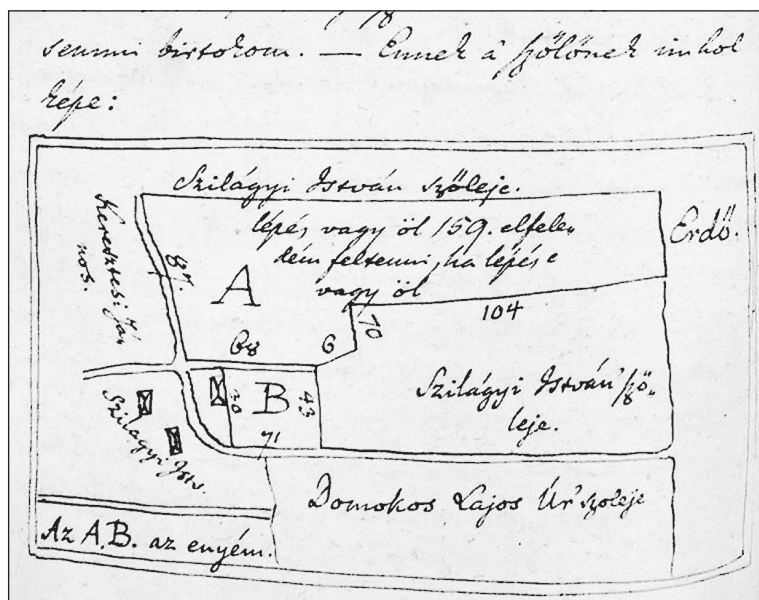 semmi birtokom. — Ennek a' szőlőnek imhol
képe:
Szilágyi István szőleje.
lépés vagy öl 159. elfelej
dém feltenni, ha lépés e
vagy öl
Erdő.
Keresztesi Já
nos.
87.
A
104
70
68
6
B
30
43
71
Szilágyi István' sző-
leje.
Szilágyi Istv.
Domokos Lajos Úr' szőleje
Az A,B. az enyém.